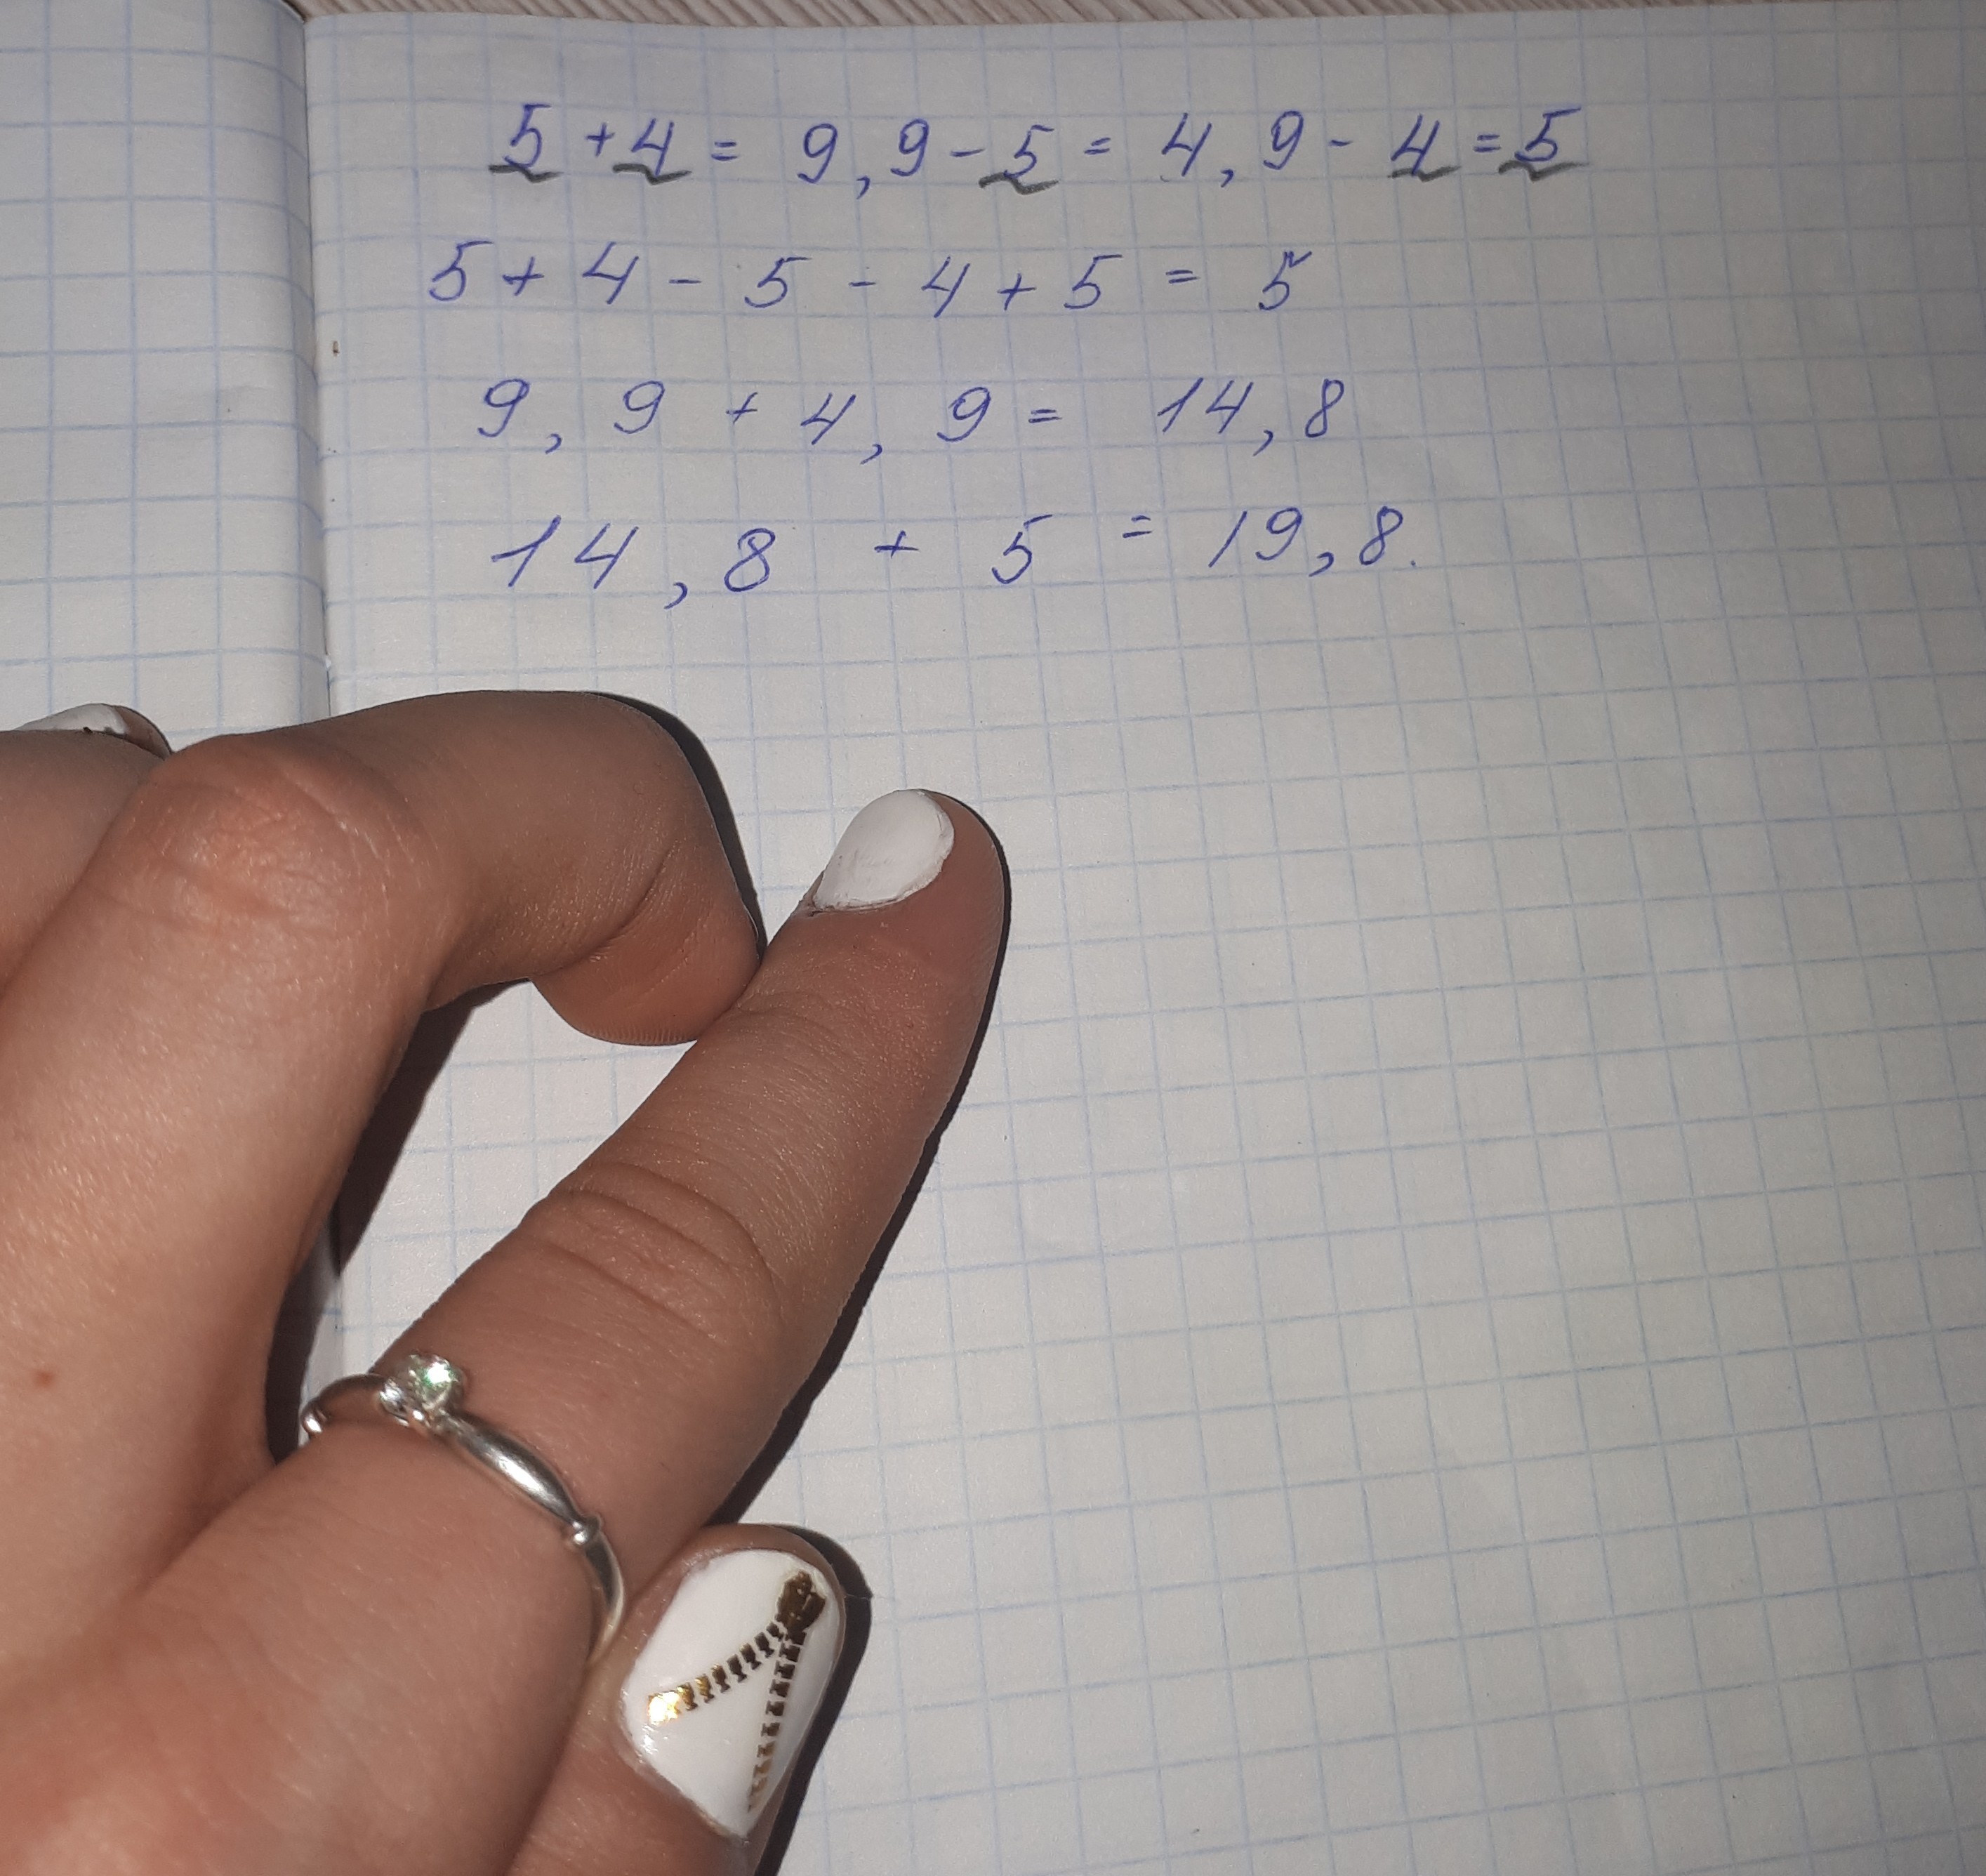 5 + 4 = 9, 9 - 5 = 4, 9 - 4 = 5
5 + 4 - 5 - 4 + 5 = 5
9, 9 + 4, 9 = 14, 8
14, 8 + 5 = 19, 8.